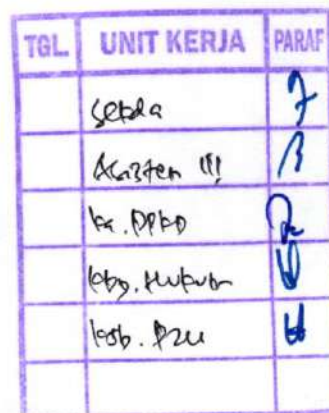 TGL. UNIT KERJA PARAF
Sekda
Asisten III
ka. DPKD
kbg. Hukum